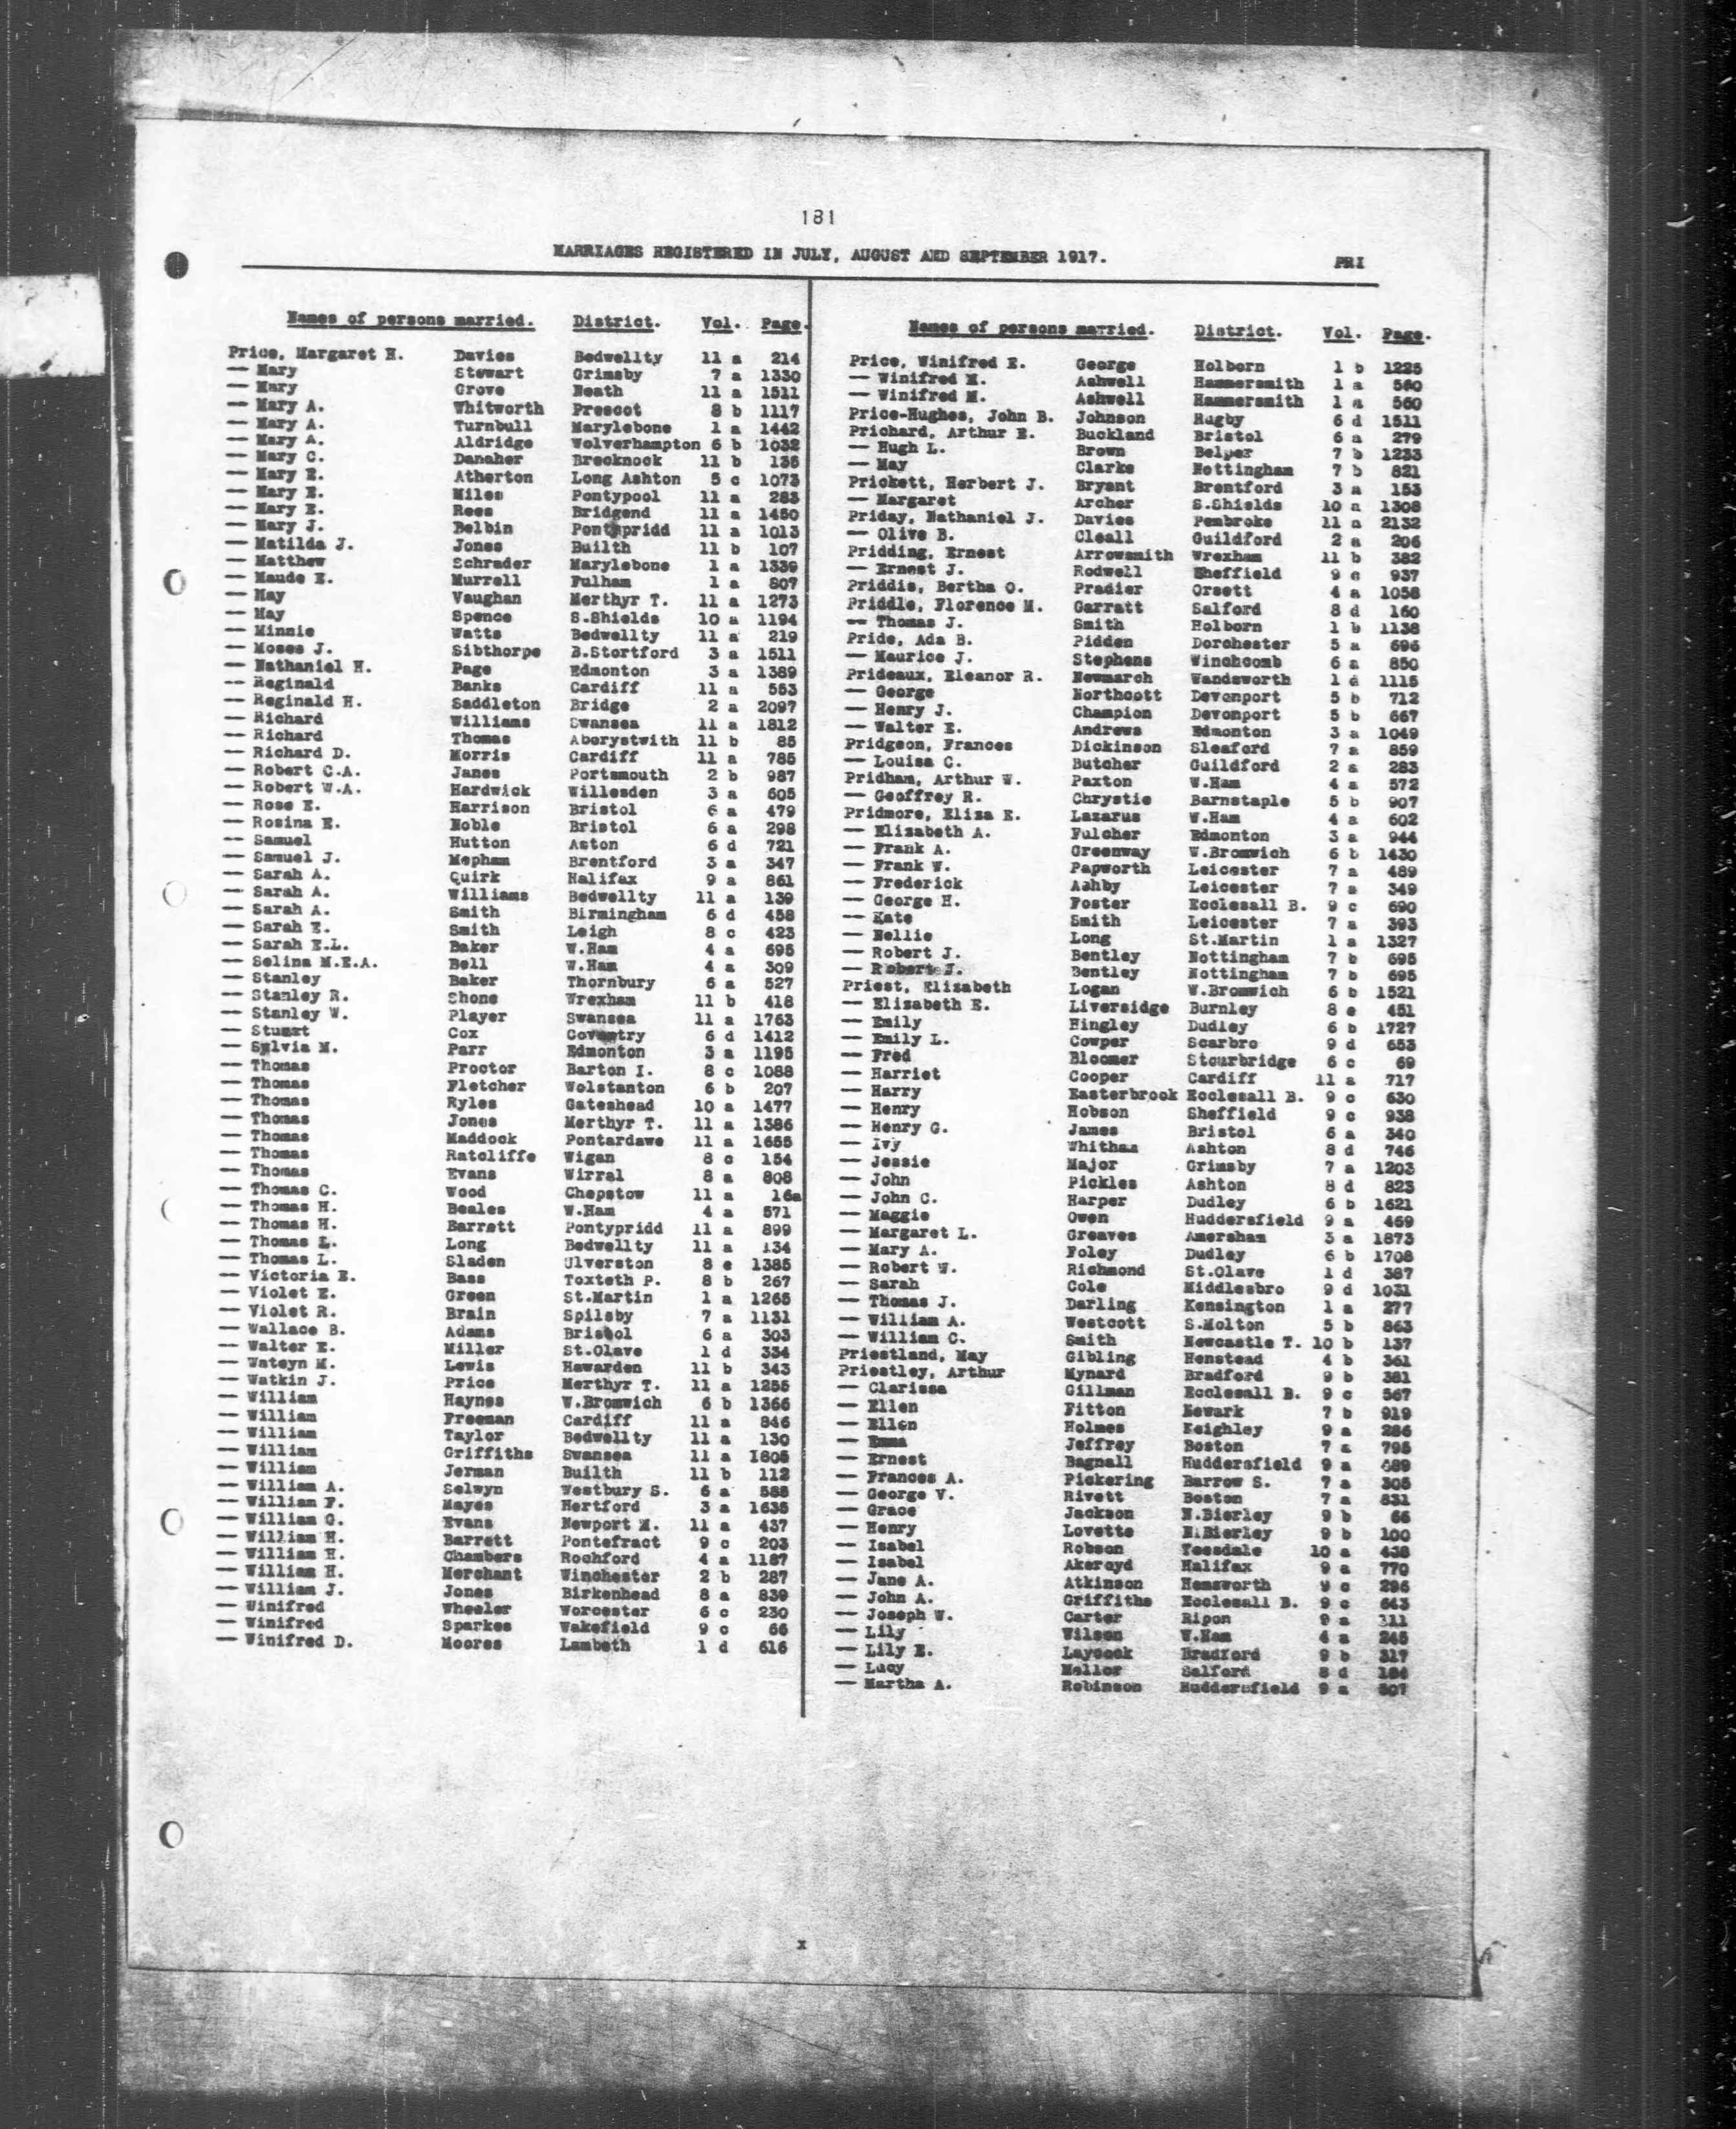 181
MARRIAGES REGISTERED IN JULY, AUGUST AND SEPTEMBER 1917. PRI
Names of persons married. District. Vol. Page.
Price, Margaret H. Davies Bedwellty 11 a 214
— Mary Stewart Grimsby 7 a 1330
— Mary Grove Neath 11 a 1511
— Mary A. Whitworth Prescot 8 b 1117
— Mary A. Turnbull Marylebone 1 a 1442
— Mary A. Aldridge Wolverhampton 6 b 1032
— Mary C. Danaher Brecknock 11 b 135
— Mary E. Atherton Long Ashton 5 c 1073
— Mary E. Miles Pontypool 11 a 283
— Mary E. Rees Bridgend 11 a 1450
— Mary J. Belbin Pontypridd 11 a 1013
— Matilda J. Jones Builth 11 b 107
— Matthew Schrader Marylebone 1 a 1339
— Maude E. Murrell Fulham 1 a 807
— May Vaughan Merthyr T. 11 a 1273
— May Spence S.Shields 10 a 1194
— Minnie Watts Bedwellty 11 a 219
— Moses J. Sibthorpe B.Stortford 3 a 1511
— Nathaniel H. Page Edmonton 3 a 1389
— Reginald Banks Cardiff 11 a 553
— Reginald H. Saddleton Bridge 2 a 2097
— Richard Williams Swansea 11 a 1812
— Richard Thomas Aberystwith 11 b 85
— Richard D. Morris Cardiff 11 a 785
— Robert C.A. Janes Portsmouth 2 b 987
— Robert W.A. Hardwick Willesden 3 a 605
— Rose E. Harrison Bristol 6 a 479
— Rosina E. Noble Bristol 6 a 298
— Samuel Hutton Aston 6 d 721
— Samuel J. Mepham Brentford 3 a 347
— Sarah A. Quirk Halifax 9 a 861
— Sarah A. Williams Bedwellty 11 a 139
— Sarah A. Smith Birmingham 6 d 458
— Sarah E. Smith Leigh 8 c 423
— Sarah E.L. Baker W.Ham 4 a 695
— Selina M.E.A. Bell W.Ham 4 a 309
— Stanley Baker Thornbury 6 a 527
— Stanley R. Shone Wrexham 11 b 418
— Stanley W. Player Swansea 11 a 1763
— Stuart Cox Coventry 6 d 1412
— Sylvia M. Parr Edmonton 3 a 1195
— Thomas Proctor Barton I. 8 c 1088
— Thomas Fletcher Wolstanton 6 b 207
— Thomas Ryles Gateshead 10 a 1477
— Thomas Jones Merthyr T. 11 a 1386
— Thomas Maddock Pontardawe 11 a 1655
— Thomas Ratcliffe Wigan 8 c 154
— Thomas Evans Wirral 8 a 808
— Thomas C. Wood Chepstow 11 a 16a
— Thomas H. Beales W.Ham 4 a 571
— Thomas H. Barrett Pontypridd 11 a 899
— Thomas L. Long Bedwellty 11 a 134
— Thomas L. Sladen Ulverston 8 e 1385
— Victoria E. Bass Toxteth P. 8 b 267
— Violet E. Green St.Martin 1 a 1265
— Violet R. Brain Spilsby 7 a 1131
— Wallace B. Adams Bristol 6 a 303
— Walter E. Miller St.Olave 1 d 334
— Wateyn M. Lewis Hawarden 11 b 343
— Watkin J. Price Merthyr T. 11 a 1255
— William Haynes W.Bromwich 6 b 1366
— William Freeman Cardiff 11 a 846
— William Taylor Bedwellty 11 a 130
— William Griffiths Swansea 11 a 1805
— William Jerman Builth 11 b 112
— William A. Selwyn Westbury S. 6 a 588
— William F. Mayes Hertford 3 a 1635
— William G. Evans Newport M. 11 a 437
— William H. Barrett Pontefract 9 c 203
— William H. Chambers Rochford 4 a 1187
— William H. Merchant Winchester 2 b 287
— William J. Jones Birkenhead 8 a 839
— Winifred Wheeler Worcester 6 c 230
— Winifred Sparkes Wakefield 9 c 66
— Winifred D. Moores Lambeth 1 d 616
Names of persons married. District. Vol. Page.
Price, Winifred E. George Holborn 1 b 1225
— Winifred M. Ashwell Hammersmith 1 a 560
— Winifred M. Ashwell Hammersmith 1 a 560
Price-Hughes, John B. Johnson Rugby 6 d 1511
Prichard, Arthur E. Buckland Bristol 6 a 279
— Hugh L. Brown Belper 7 b 1233
— May Clarke Nottingham 7 b 821
Prickett, Herbert J. Bryant Brentford 3 a 153
— Margaret Archer S.Shields 10 a 1308
Priday, Nathaniel J. Davies Pembroke 11 a 2132
— Olive B. Cleall Guildford 2 a 206
Pridding, Ernest Arrowsmith Wrexham 11 b 382
— Ernest J. Rodwell Sheffield 9 c 937
Priddis, Bertha O. Pradier Orsett 4 a 1058
Priddle, Florence M. Garratt Salford 8 d 160
— Thomas J. Smith Holborn 1 b 1138
Pride, Ada B. Pidden Dorchester 5 a 696
— Maurice J. Stephens Winchcomb 6 a 850
Prideaux, Eleanor R. Newmarch Wandsworth 1 d 1115
— George Northcott Devonport 5 b 712
— Henry J. Champion Devonport 5 b 667
— Walter E. Andrews Edmonton 3 a 1049
Pridgeon, Frances Dickinson Sleaford 7 a 859
— Louisa C. Butcher Guildford 2 a 283
Pridham, Arthur W. Paxton W.Ham 4 a 572
— Geoffrey R. Chrystie Barnstaple 5 b 907
Pridmore, Eliza E. Lazarus W.Ham 4 a 602
— Elizabeth A. Fulcher Edmonton 3 a 944
— Frank A. Greenway W.Bromwich 6 b 1430
— Frank W. Papworth Leicester 7 a 489
— Frederick Ashby Leicester 7 a 349
— George H. Foster Ecclesall B. 9 c 690
— Kate Smith Leicester 7 a 393
— Nellie Long St.Martin 1 a 1327
— Robert J. Bentley Nottingham 7 b 695
— Robert J. Bentley Nottingham 7 b 695
Priest, Elizabeth Logan W.Bromwich 6 b 1521
— Elizabeth E. Liversidge Burnley 8 e 451
— Emily Hingley Dudley 6 b 1727
— Emily L. Cowper Scarbro 9 d 653
— Fred Bloomer Stourbridge 6 c 69
— Harriet Cooper Cardiff 11 a 717
— Harry Easterbrook Ecclesall B. 9 c 630
— Henry Hobson Sheffield 9 c 938
— Henry G. James Bristol 6 a 340
— Ivy Whitham Ashton 8 d 746
— Jessie Major Grimsby 7 a 1203
— John Pickles Ashton 8 d 823
— John C. Harper Dudley 6 b 1621
— Maggie Owen Huddersfield 9 a 469
— Margaret L. Greaves Amersham 3 a 1873
— Mary A. Foley Dudley 6 b 1708
— Robert W. Richmond St.Olave 1 d 387
— Sarah Cole Middlesbro 9 d 1031
— Thomas J. Darling Kensington 1 a 277
— William A. Westcott S.Molton 5 b 863
— William C. Smith Newcastle T. 10 b 137
Priestland, May Gibling Henstead 4 b 361
Priestley, Arthur Mynard Bradford 9 b 381
— Clarissa Gillman Ecclesall B. 9 c 567
— Ellen Fitton Newark 7 b 919
— Ellen Holmes Keighley 9 a 286
— Emma Jeffrey Boston 7 a 795
— Ernest Bagnall Huddersfield 9 a 489
— Frances A. Pickering Barrow S. 7 a 305
— George V. Rivett Boston 7 a 831
— Grace Jackson N.Bierley 9 b 66
— Henry Lovette N.Bierley 9 b 100
— Isabel Robson Teesdale 10 a 438
— Isabel Akeroyd Halifax 9 a 770
— Jane A. Atkinson Hemsworth 9 c 296
— John A. Griffiths Ecclesall B. 9 c 643
— Joseph W. Carter Ripon 9 a 311
— Lily Wilson W.Ham 4 a 245
— Lily E. Laycock Bradford 9 b 317
— Lucy Mellor Salford 8 d 184
— Martha A. Robinson Huddersfield 9 a 507
x